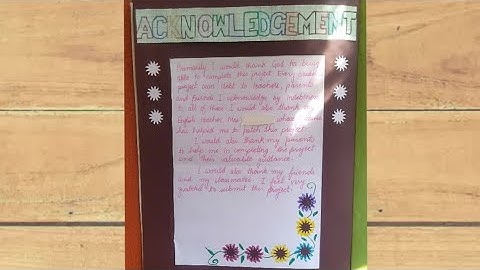 ACKNOWLEDGEMENT
Primarily I would thank God for being
able to complete this project. Every
project own debt to teachers, parents
and friends I acknowledge my indebtness
to all of them. I would also thank my
English teacher, Mrs.
has helped me to this project.
I would also thank my parents
to help me in completing the project
and their valuable guidance.
I would also thank my friends
and my classmates. I feel very
grateful to submit this project.